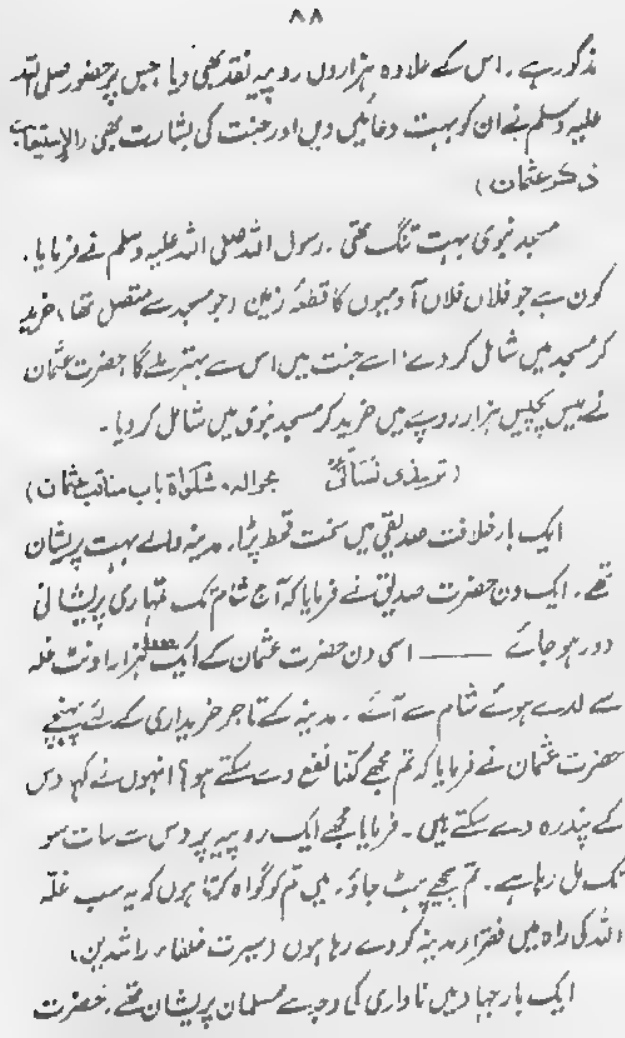 ۸۸
مذکور ہے. اس کے علاوہ ہزاروں روپیہ نقد بھی دیا جس پر حضور صلی اللہ
علیہ وسلم نے ان کو بہت دعائیں دیں اور جنت کی بشارت بھی (الاستیعاب
ذکر عثمان)
مسجد نبوی بہت تنگ تھی. رسول اللہ صلی اللہ علیہ وسلم نے فرمایا.
کون ہے جو فلاں فلاں آدمیوں کا قطعۂ زمین (جو مسجد سے متصل تھا) خرید
کر مسجد میں شامل کر دے؛ اسے جنت میں اس سے بہتر ملے گا، حضرت عثمان
نے بیس پچیس ہزار روپے میں خرید کر مسجد نبوی میں شامل کر دیا۔
(ترمذی نسائی بحوالہ مشکوٰۃ باب مناقب عثمان)
ایک بار خلافت صدیقی میں سخت قحط پڑا. مدینہ والے بہت پریشان
تھے. ایک دن حضرت صدیق نے فرمایا کہ آج شام تک تمہاری پریشانی
دور ہو جائے —— اسی دن حضرت عثمان کے ایک ہزار اونٹ غلہ
سے لدے ہوئے شام سے آئے. مدینہ کے تاجر خریداری کے لئے پہنچے
حضرت عثمان نے فرمایا کہ تم مجھے کتنا نفع دے سکتے ہو؟ انہوں نے کہا دس
کے پندرہ دے سکتے ہیں۔ فرمایا مجھے ایک روپیہ پر دس سے سات سو
تک مل رہا ہے. تم پیچھے ہٹ جاؤ. میں تم کو گواہ کرتا ہوں کہ یہ سب غلّہ
اللہ کی راہ میں فقراء مدینہ کو دے رہا ہوں (سیرت خلفاء راشدین)
ایک بار جہاد میں ناداری کی وجہ سے مسلمان پریشان تھے. حضرت